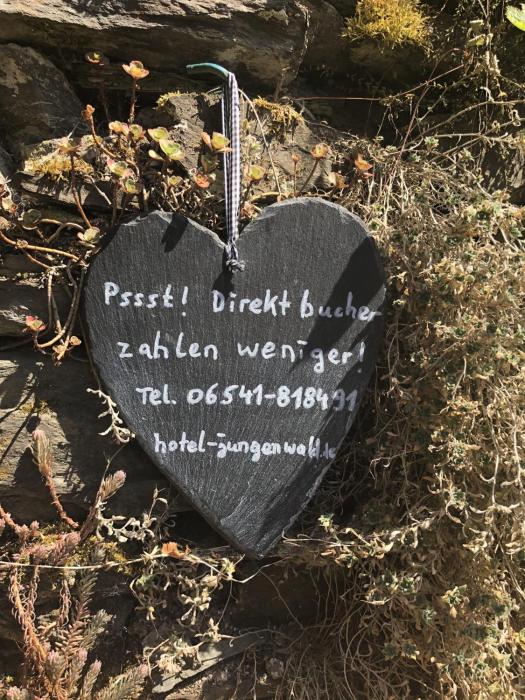 Pssst! Direktbucher
zahlen weniger!
Tel. 06541-818491
hotel-jungenwald.de